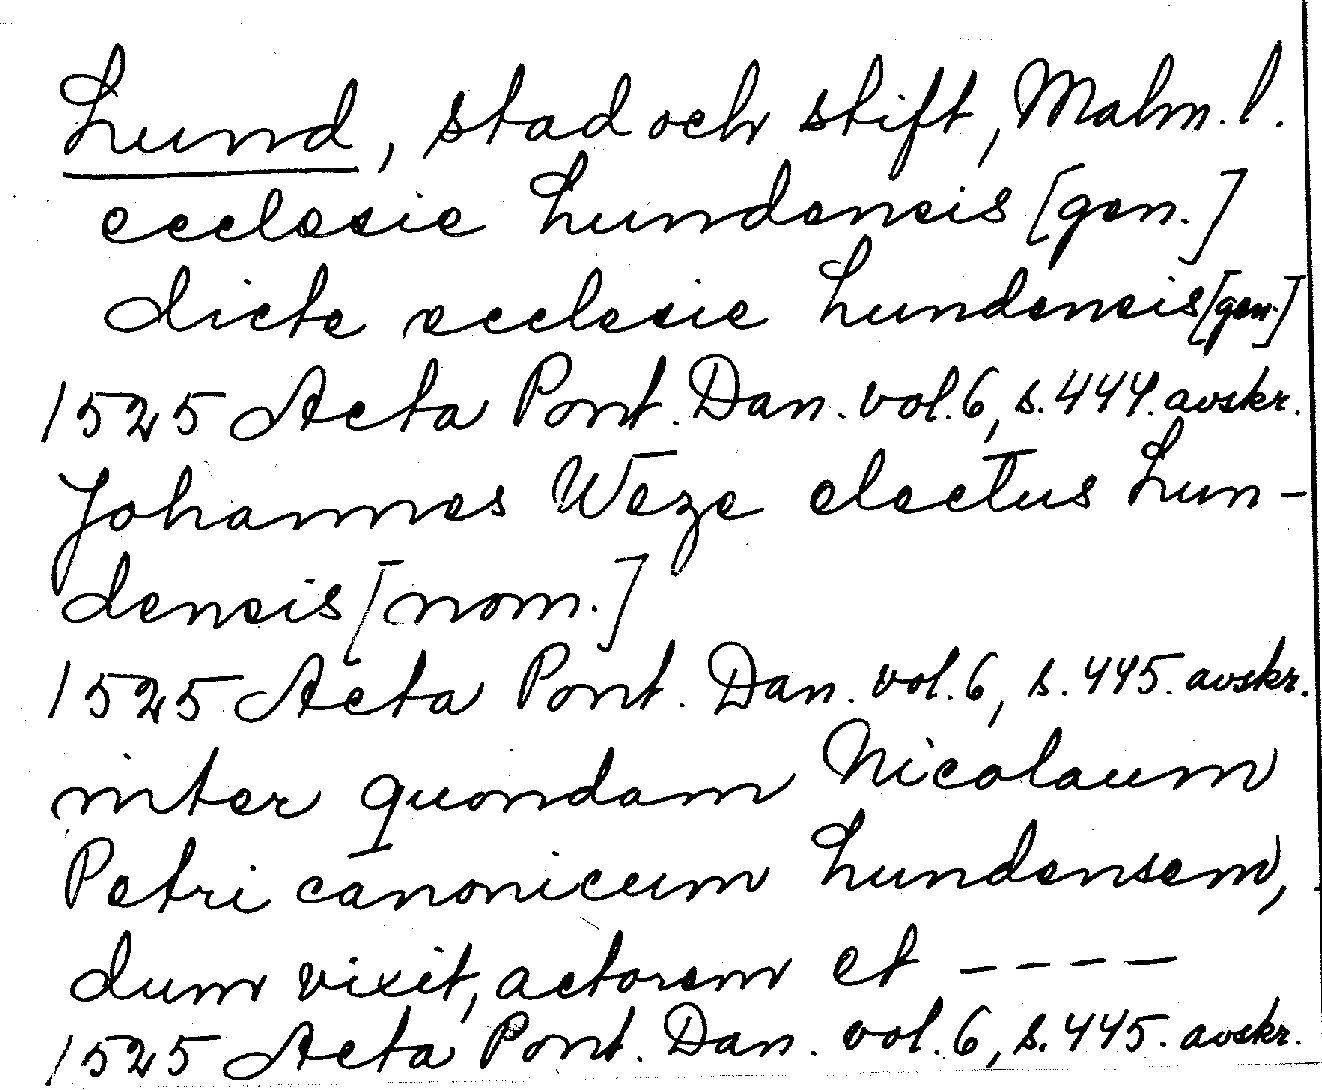 Lund, stad och stift, Malm. l.
ecclesie Lundensis [gen.]
dicte ecclesie Lundensis [gen.]
1525 Acta Pont. Dan. vol. 6, s. 444. avskr.
Johannes Weze electus Lun-
densis [nom.]
1525 Acta Pont. Dan. vol. 6, s. 445. avskr.
inter quondam Nicolaum
Petri canonicum Lundensem,
dum vixit, actorem et ----
1525 Acta Pont. Dan. vol. 6, s. 445. avskr.